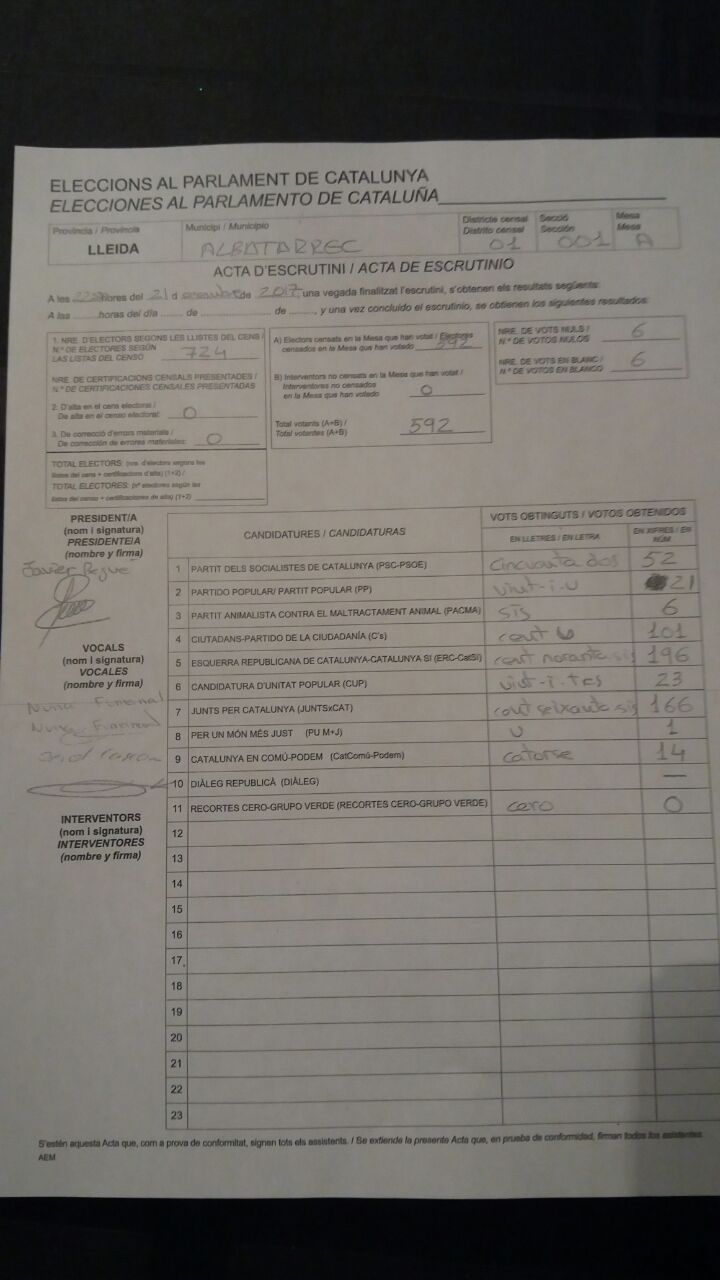 ELECCIONS AL PARLAMENT DE CATALUNYA
ELECCIONES AL PARLAMENTO DE CATALUÑA
Província / Provincia
LLEIDA
Municipi / Municipio
ALBATARREC
Districte censal
Distrito censal
01
Secció
Sección
001
Mesa
Mesa
A
ACTA D'ESCRUTINI / ACTA DE ESCRUTINIO
A les hores del 21 d de 2017, una vegada finalitzat l'escrutini, s'obtenen els resultats següents:
A las ........ horas del día ........ de .................... de ........, y una vez concluido el escrutinio, se obtienen los siguientes resultados:
1. NRE. D'ELECTORS SEGONS LES LLISTES DEL CENS /
N.º DE ELECTORES SEGÚN
LAS LISTAS DEL CENSO 724
NRE. DE CERTIFICACIONS CENSALS PRESENTADES /
N.º DE CERTIFICACIONES CENSALES PRESENTADAS
2. D'alta en el cens electoral /
De alta en el censo electoral: 0
3. De correcció d'errors materials /
De corrección de errores materiales: 0
TOTAL ELECTORS: (nre. d'electors segons les
llistes del cens + certificacions d'alta) (1+2) /
TOTAL ELECTORES: (nº electores según las
listas del censo + certificaciones de alta) (1+2)
A) Electors censats en la Mesa que han votat / Electores
censados en la Mesa que han votado 592
B) Interventors no censats en la Mesa que han votat /
Interventores no censados
en la Mesa que han votado 0
Total votants (A+B) /
Total votantes (A+B) 592
NRE. DE VOTS NULS /
N.º DE VOTOS NULOS 6
NRE. DE VOTS EN BLANC /
N.º DE VOTOS EN BLANCO 6
PRESIDENT/A
(nom i signatura)
PRESIDENTE/A
(nombre y firma)
Javier
VOCALS
(nom i signatura)
VOCALES
(nombre y firma)
INTERVENTORS
(nom i signatura)
INTERVENTORES
(nombre y firma)
CANDIDATURES / CANDIDATURAS
VOTS OBTINGUTS / VOTOS OBTENIDOS
EN LLETRES / EN LETRA
EN XIFRES / EN NÚM
1 PARTIT DELS SOCIALISTES DE CATALUNYA (PSC-PSOE) Cincuanta dos 52
2 PARTIDO POPULAR/ PARTIT POPULAR (PP) vint-i-u 21
3 PARTIT ANIMALISTA CONTRA EL MALTRACTAMENT ANIMAL (PACMA) sis 6
4 CIUTADANS-PARTIDO DE LA CIUDADANÍA (C's) cent u 101
5 ESQUERRA REPUBLICANA DE CATALUNYA-CATALUNYA SI (ERC-CatSí) cent noranta sis 196
6 CANDIDATURA D'UNITAT POPULAR (CUP) vint-i-tes 23
7 JUNTS PER CATALUNYA (JUNTSxCAT) cent seixanta sis 166
8 PER UN MÓN MÉS JUST (PU M+J) u 1
9 CATALUNYA EN COMÚ-PODEM (CatComú-Podem) catorse 14
10 DIÀLEG REPUBLICÀ (DIÀLEG) —
11 RECORTES CERO-GRUPO VERDE (RECORTES CERO-GRUPO VERDE) cero 0
12
13
14
15
16
17
18
19
20
21
22
23
S'estén aquesta Acta que, com a prova de conformitat, signen tots els assistents. / Se extiende la presente Acta que, en prueba de conformidad, firman todos los asistentes
AEM